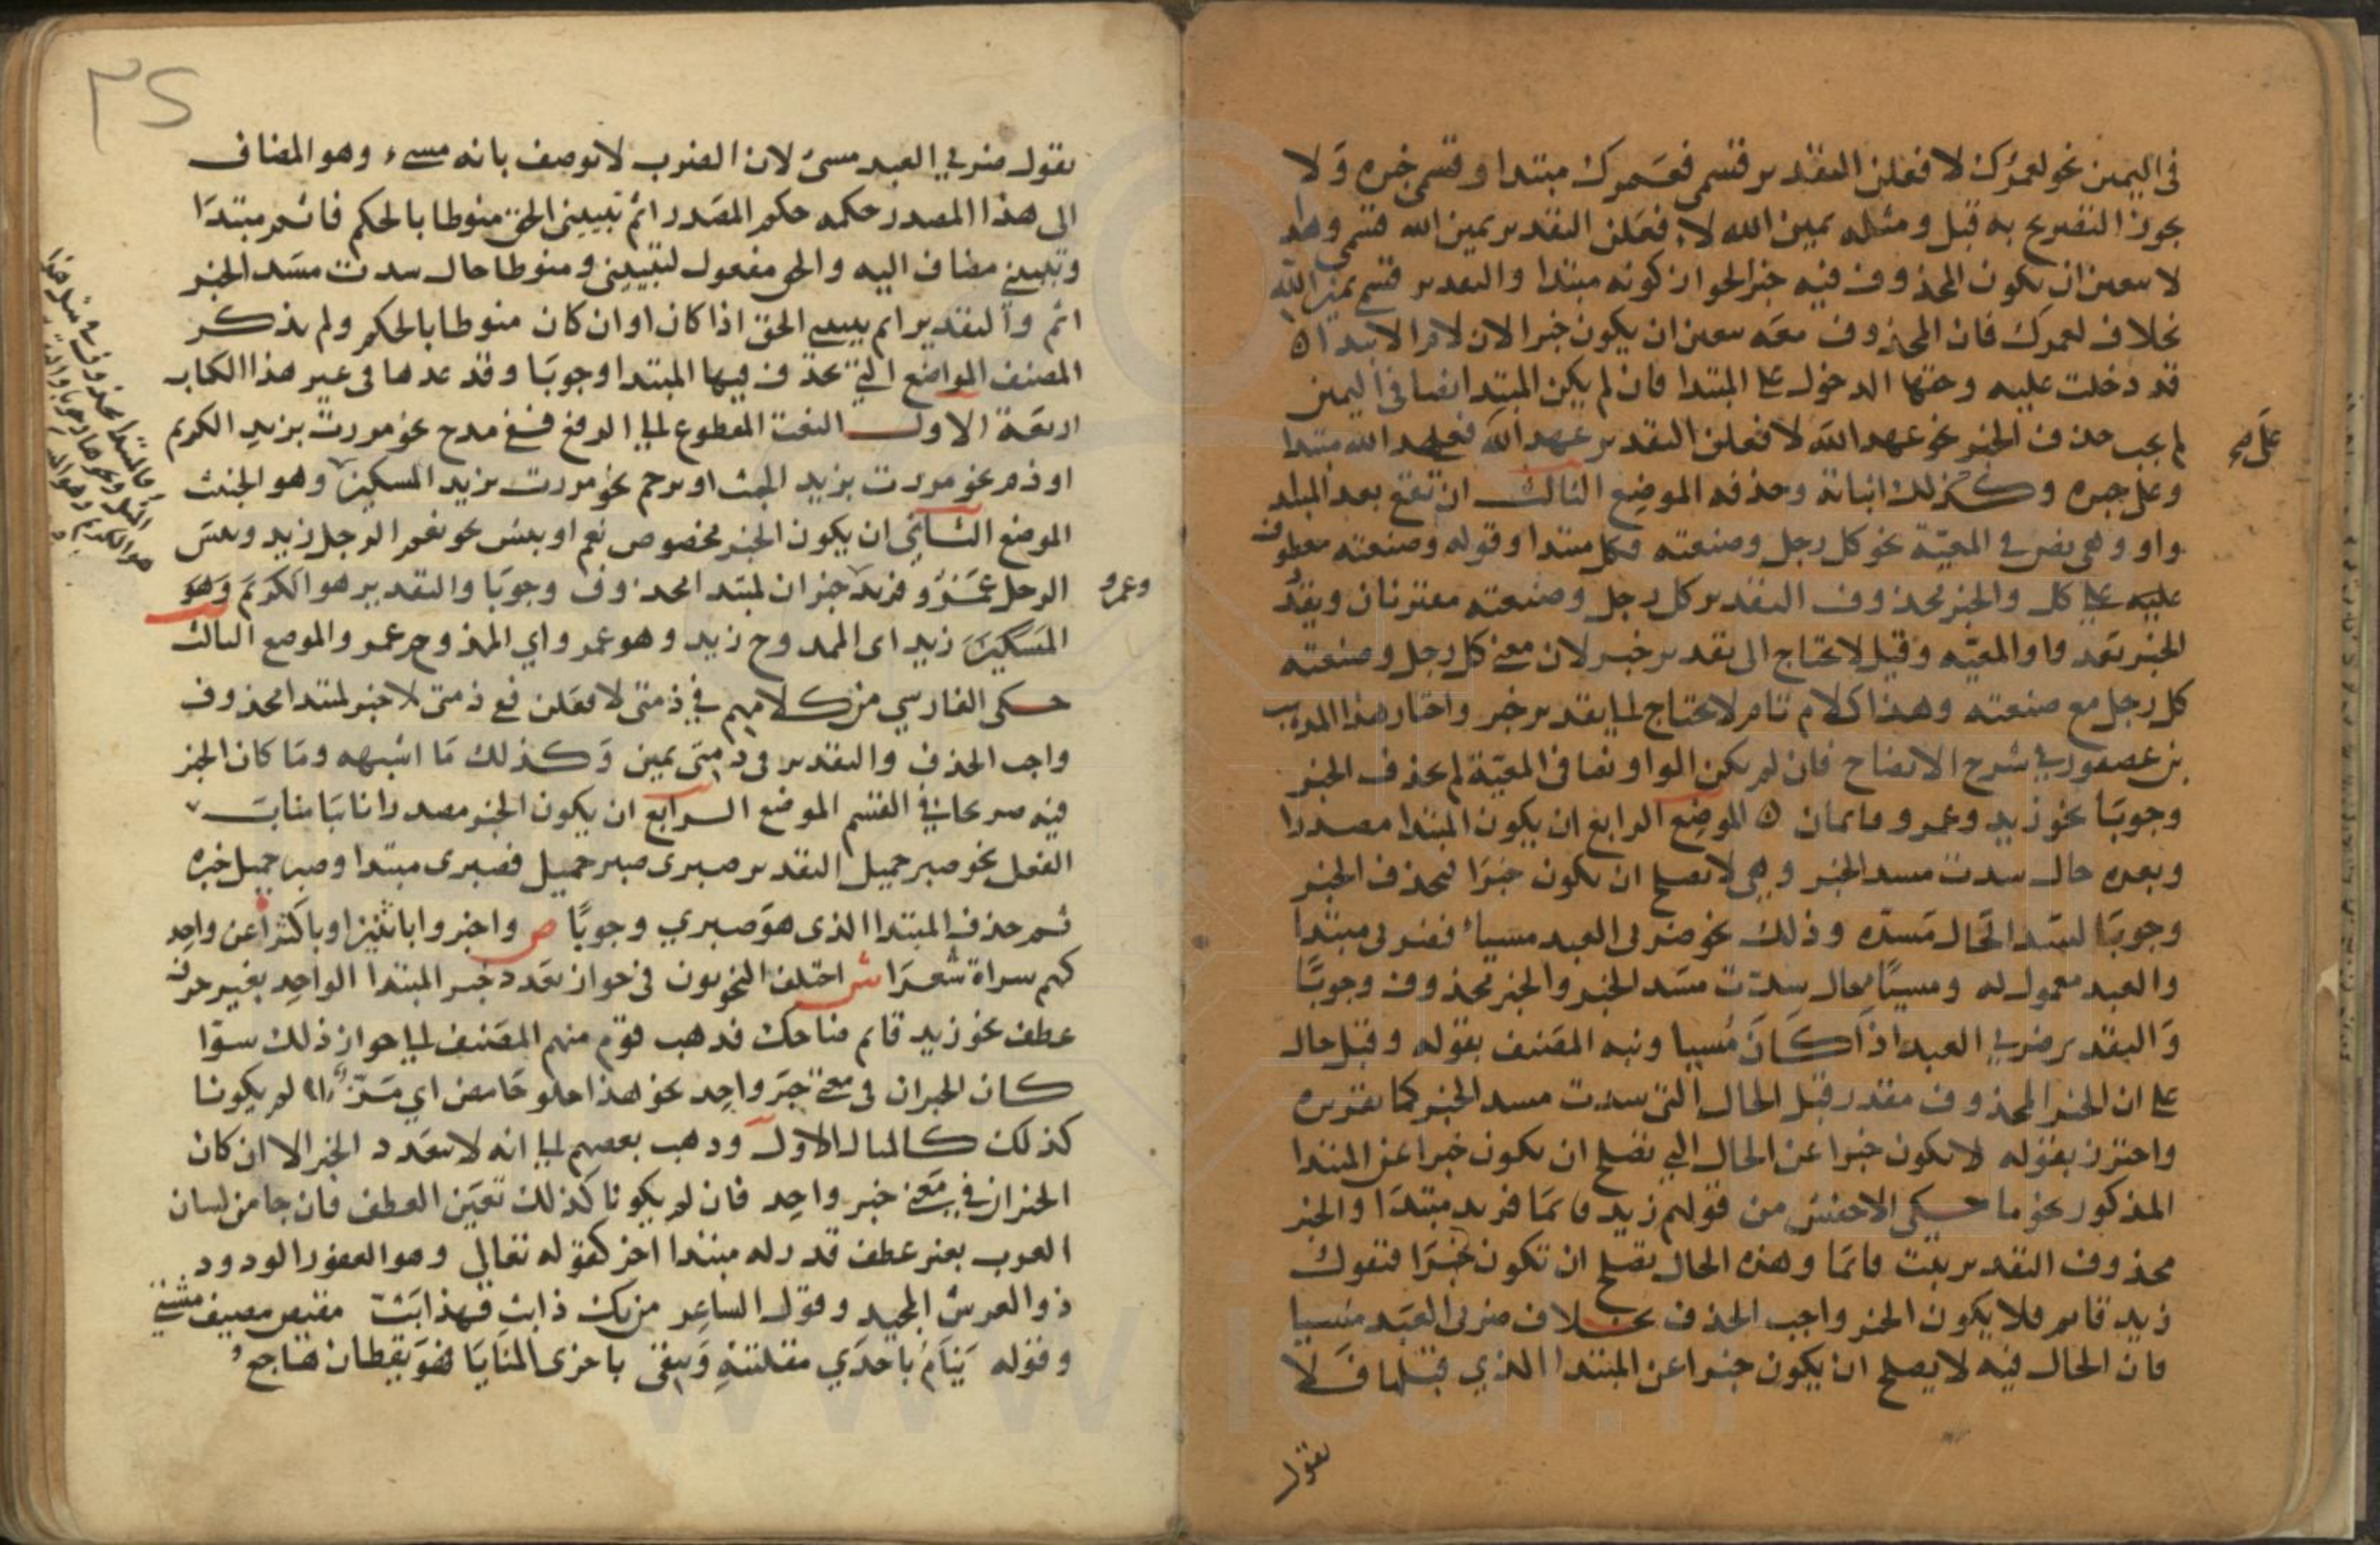 في اليمين نحو لعمرك لافعلن التقدير قسمي فعمرك مبتدا وقسمي خبره ولا
يجوز التصريح به قبل ومثله يمين الله لافعلن التقدير يمين الله قسمي وهذا
لا يتعين ان يكون المحذوف فيه خبرا لجواز كونه مبتدا والتقدير قسمي يمين الله
بخلاف لعمرك فان المحذوف معه يتعين ان يكون خبرا لان لام الابتداء
قد دخلت عليه وحقها الدخول على المبتدا فان لم يكن المبتدا نصا في اليمين
لم يجب حذف الخبر نحو عهد الله لافعلن التقدير عهد الله فعهد الله مبتدا
وعلي خبره وكذلك اثباته وحذفه الموضع الثالث ان تقع بعد المبتدا
واو وهي نص في المعية نحو كل رجل وصنعته فكل مبتدا وقوله وصنعته معطوف
عليه على كل والخبر محذوف التقدير كل رجل وصنعته مقترنان ويقدر
الخبر بعد واو المعيه وقيل لا يحتاج الى تقدير خبر لان معنى كل رجل وصنعته
كل رجل مع صنعته وهذا كلام تام لا يحتاج الى تقدير خبر واختار هذا المذهب
بن عصفور في شرح الايضاح فان لم يكن الواو نصا في المعية لم يحذف الخبر
وجوبا نحو زيد وعمرو قايمان ه الموضع الرابع ان يكون المبتدا مصدرا
وبعده حال سدت مسد الخبر وهي لا تصلح ان تكون خبرا فيحذف الخبر
وجوبا لسد الحال مسده وذلك نحو ضربي العبد مسيا فضربي مبتدا
والعبد معمول له ومسيا حال سدت مسد الخبر والخبر محذوف وجوبا
والتقدير ضربي العبد اذا كان مسيا ونبه المصنف بقوله وقبل حال
على ان الخبر المحذوف مقدر قبل الحال التي سدت مسد الخبر كما تقريره
واحترز بقوله لا يكون خبرا عن الحال التي تصلح ان تكون خبرا عن المبتدا
المذكور نحو ما حكى الاخفش من قولهم زيد قايما فزيد مبتدا والخبر
محذوف التقدير ثبت قايما وهذه الحال تصلح ان تكون خبرا فتقول
زيد قايم فلا يكون الخبر واجب الحذف بخلاف ضربي العبد مسيا
فان الحال فيه لا يصلح ان يكون خبرا عن المبتدا الذي قبلها فلا
تقول
٣٤
تقول ضربي العبد مسيء لان الضرب لا يوصف بانه مسيء وهو المضاف
الى هذا المصدر حكمه حكم المصدر اتم تبييني الحق منوطا بالحكم فاتم مبتدا
وتبييني مضاف اليه والحق مفعول لتبييني ومنوطا حال سدت مسد الخبر
اتم والتقدير اتم تبييني الحق اذا كان او ان كان منوطا بالحكم ولم يذكر
المصنف المواضع التي تحذف فيها المبتدا وجوبا وقد عدها في غير هذا الكتاب
اربعة الاول النعت المقطوع الى الرفع في مدح نحو مررت بزيد الكريم
او ذم نحو مررت بزيد الخبيث او ترحم نحو مررت بزيد المسكين وهو الخبيث
الموضع الثاني ان يكون الخبر مخصوص نعم او بئس نحو نعم الرجل زيد وبئس
الرجل عمرو فزيد خبران لمبتدا محذوف وجوبا والتقدير هو الكريم وهو
وعمرو
المسكين زيد اي الممدوح زيد وهو عمرو اي المذموم عمرو والموضع الثالث
حكى الفارسي من كلامهم في ذمتي لافعلن ففي ذمتي لا خبر لمبتدا محذوف
واجب الحذف والتقدير في ذمتي يمين وكذلك ما اشبهه وما كان الخبر
فيه صريحا في القسم الموضع الرابع ان يكون الخبر مصدرا نايبا مناب
الفعل نحو صبر جميل التقدير صبري صبر جميل فصبري مبتدا وصبر جميل خبره
ثم حذف المبتدا الذي هو صبري وجوبا ص واخبروا باثنين او باكثرا عن واحد
كهم سراة شعرا ش اختلف النحويون في جواز تعدد خبر المبتدا الواحد بغير حرف
عطف نحو زيد قايم ضاحك فذهب قوم منهم المصنف الى جواز ذلك سوا
كان الخبران في معنى خبر واحد نحو هذا حلو حامض اي مز ام لم يكونا
كذلك كالمثال الاول وذهب بعضهم الى انه لا يتعدد الخبر الا ان كان
الخبران في معنى خبر واحد فان لم يكونا كذلك تعين العطف فان جا من لسان
العرب بغير عطف قدر له مبتدا اخر كقوله تعالى وهو الغفور الودود
ذو العرش المجيد وقول الشاعر من يك ذا بت فهذا بتي مقيظ مصيف مشتي
وقوله ينام باحدي مقلتيه ويتقي باخرى المنايا فهو يقظان هاجع